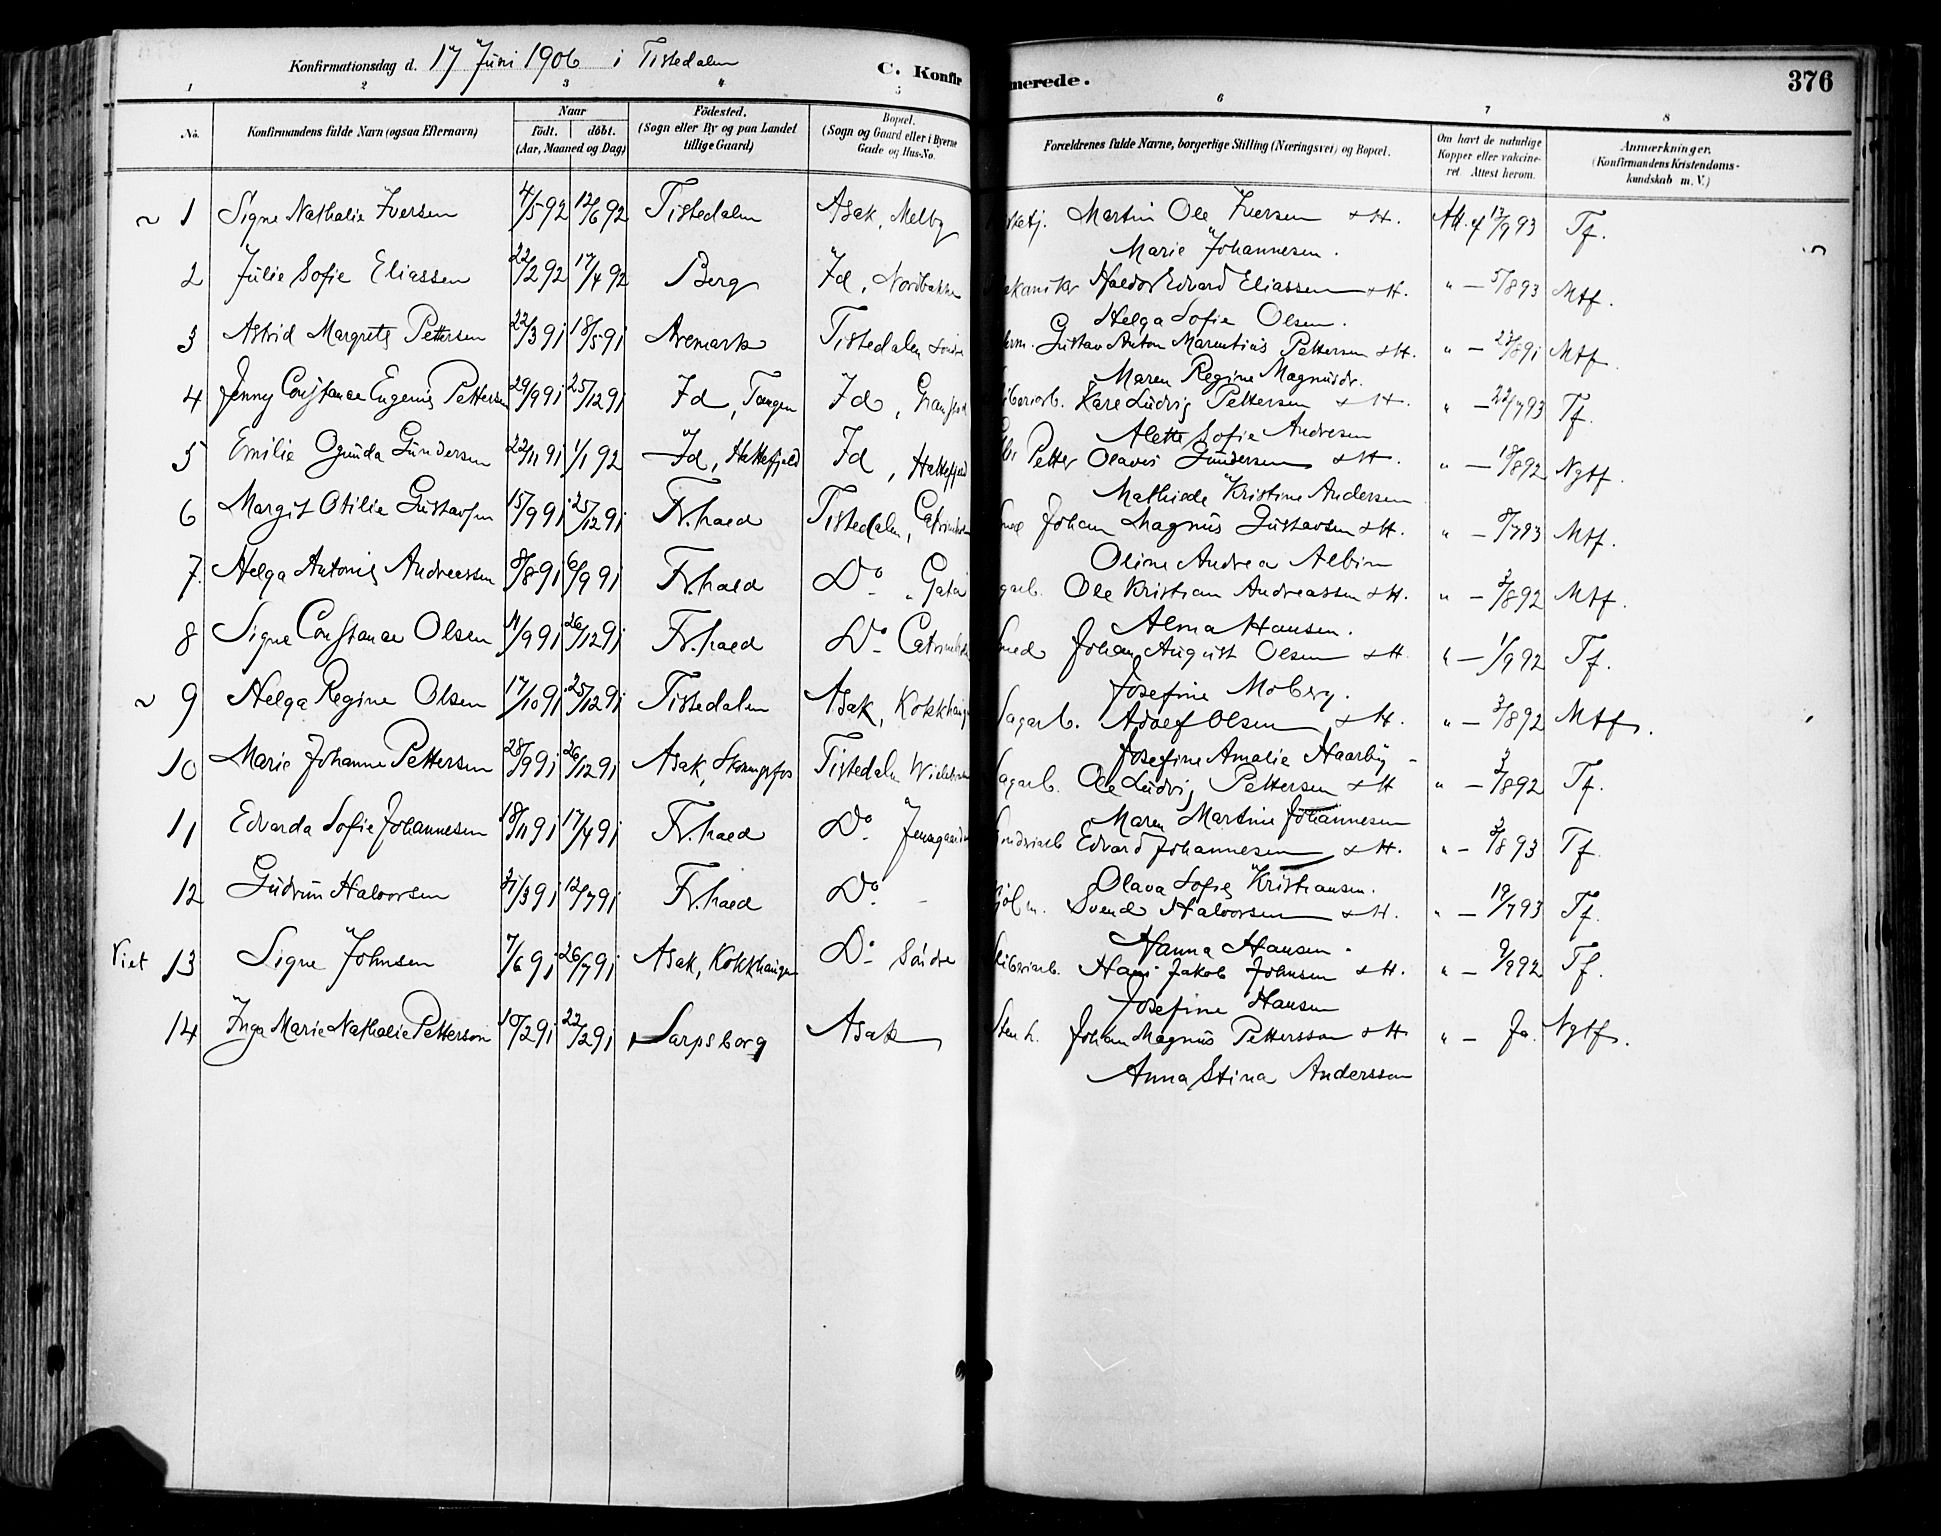 Konfirmationsdag d. 17 Juni 1906 i Tistedalen C. Konfirmerede. 376
1 2 3 4 5 6 7 8
No. Konfirmandens fulde Navn (ogsaa Efternavn) Naar født. døbt. (Aar, Maaned og Dag) Fødested. (Sogn eller By og paa Landet tillige Gaard) Bopæl. (Sogn og Gaard eller i Byerne Gade og Hus-No. Forældrenes fulde Navne, borgerlige Stilling (Næringsvei) og Bopæl. Om havt de naturlige Kopper eller vakcineret. Attest herom. Anmærkninger. (Konfirmandens Kristendomskundskab m. V.)
~ 1 Signe Nathalie Iversen 4/5 92 12/6 92 Tistedalen Asak, Melby Martin Ole Iversen & H. Att. af 13/9 93 Tf.
Marie Johannesen.
2 Julie Sofie Eliassen 22/2 92 17/4 92 Berg Id, Nordbakke Haldor Edvard Eliassen & H. " — 5/8 93 Mtf.
Helga Sofie Olsen.
3 Astrid Margrete Pettersen 22/3 91 18/5 91 Aremark Tistedalen Søndre Gustav Anton Marentius Pettersen & H. " — 27/8 91 Mtf.
Maren Regine Magnusdr.
4 Jenny Constance Eugenie Pettersen 29/9 91 25/12 91 Id, Tangen Id, Karl Ludvig Pettersen & H. " — 22/7 93 Tf.
Alette Sofie Andresen
5 Emilie Ogunda Gundersen 22/11 91 1/1 92 Id, Hattefjeld Id, Hattefjeld Petter Olaves Gundersen & H. " — 18/8 92 Ngtf.
Mathilde Kristine Andersen
6 Margit Otilie Gustavsen 15/9 91 25/12 91 Fr.hald Tistedalen, Catrineholm Smed Johan Magnus Gustavsen & H. " — 8/7 93 Mtf.
Oline Andrea Albin
7. Helga Antonie Andreassen 8/8 91 6/9 91 Fr.hald Do. " Gata Ole Kristian Andreassen & H. " — 3/8 92 Mtf.
Alma Hansen.
8 Signe Constance Olsen 11/9 91 26/12 91 Fr.hald Do. Catrineholm Smed Johan August Olsen & H. " — 1/9 92 Tf.
Josefine Moberg.
~ 9 Helga Regine Olsen 17/10 91 25/12 91 Tistedalen Asak, Kokkhaugen Sagarb. Adolf Olsen & H. " — 3/8 92 Mtf.
Josefine Amalie Haarby
10 Marie Johanne Pettersen 28/9 91 26/12 91 Asak, Skoningsfos Tistedalen Sagarb. Ole Ludvig Pettersen & H " — 3/8 92 Tf.
Maren Martine Johannesen
11 Edvarda Sofie Johannesen 18/11 91 17/4 91 Fr.hald Do. Jensegaarden Edvard Johannesen & H. " — 3/8 93 Tf.
Olava Sofie Kristiansen.
12 Gudrun Halvorsen 31/3 91 12/7 91 Fr.hald Do. - Svend Halvorsen & H. " — 19/7 93 Tf.
Hanna Hansen.
Viet 13 Signe Johnsen 7/6 91 26/7 91 Asak, Kokkhaugen Do. Søndre Hans Jakob Johnsen & H. " — 9/9 92 Tf.
Josefine Hansen
14 Inga Marie Nathalie Petterson 10/2 91 22/2 91 Sarpsborg Asak Stenh. Johan Magnus Pettersson & H " — Ja. Ngtf.
Anna Stina Andersson